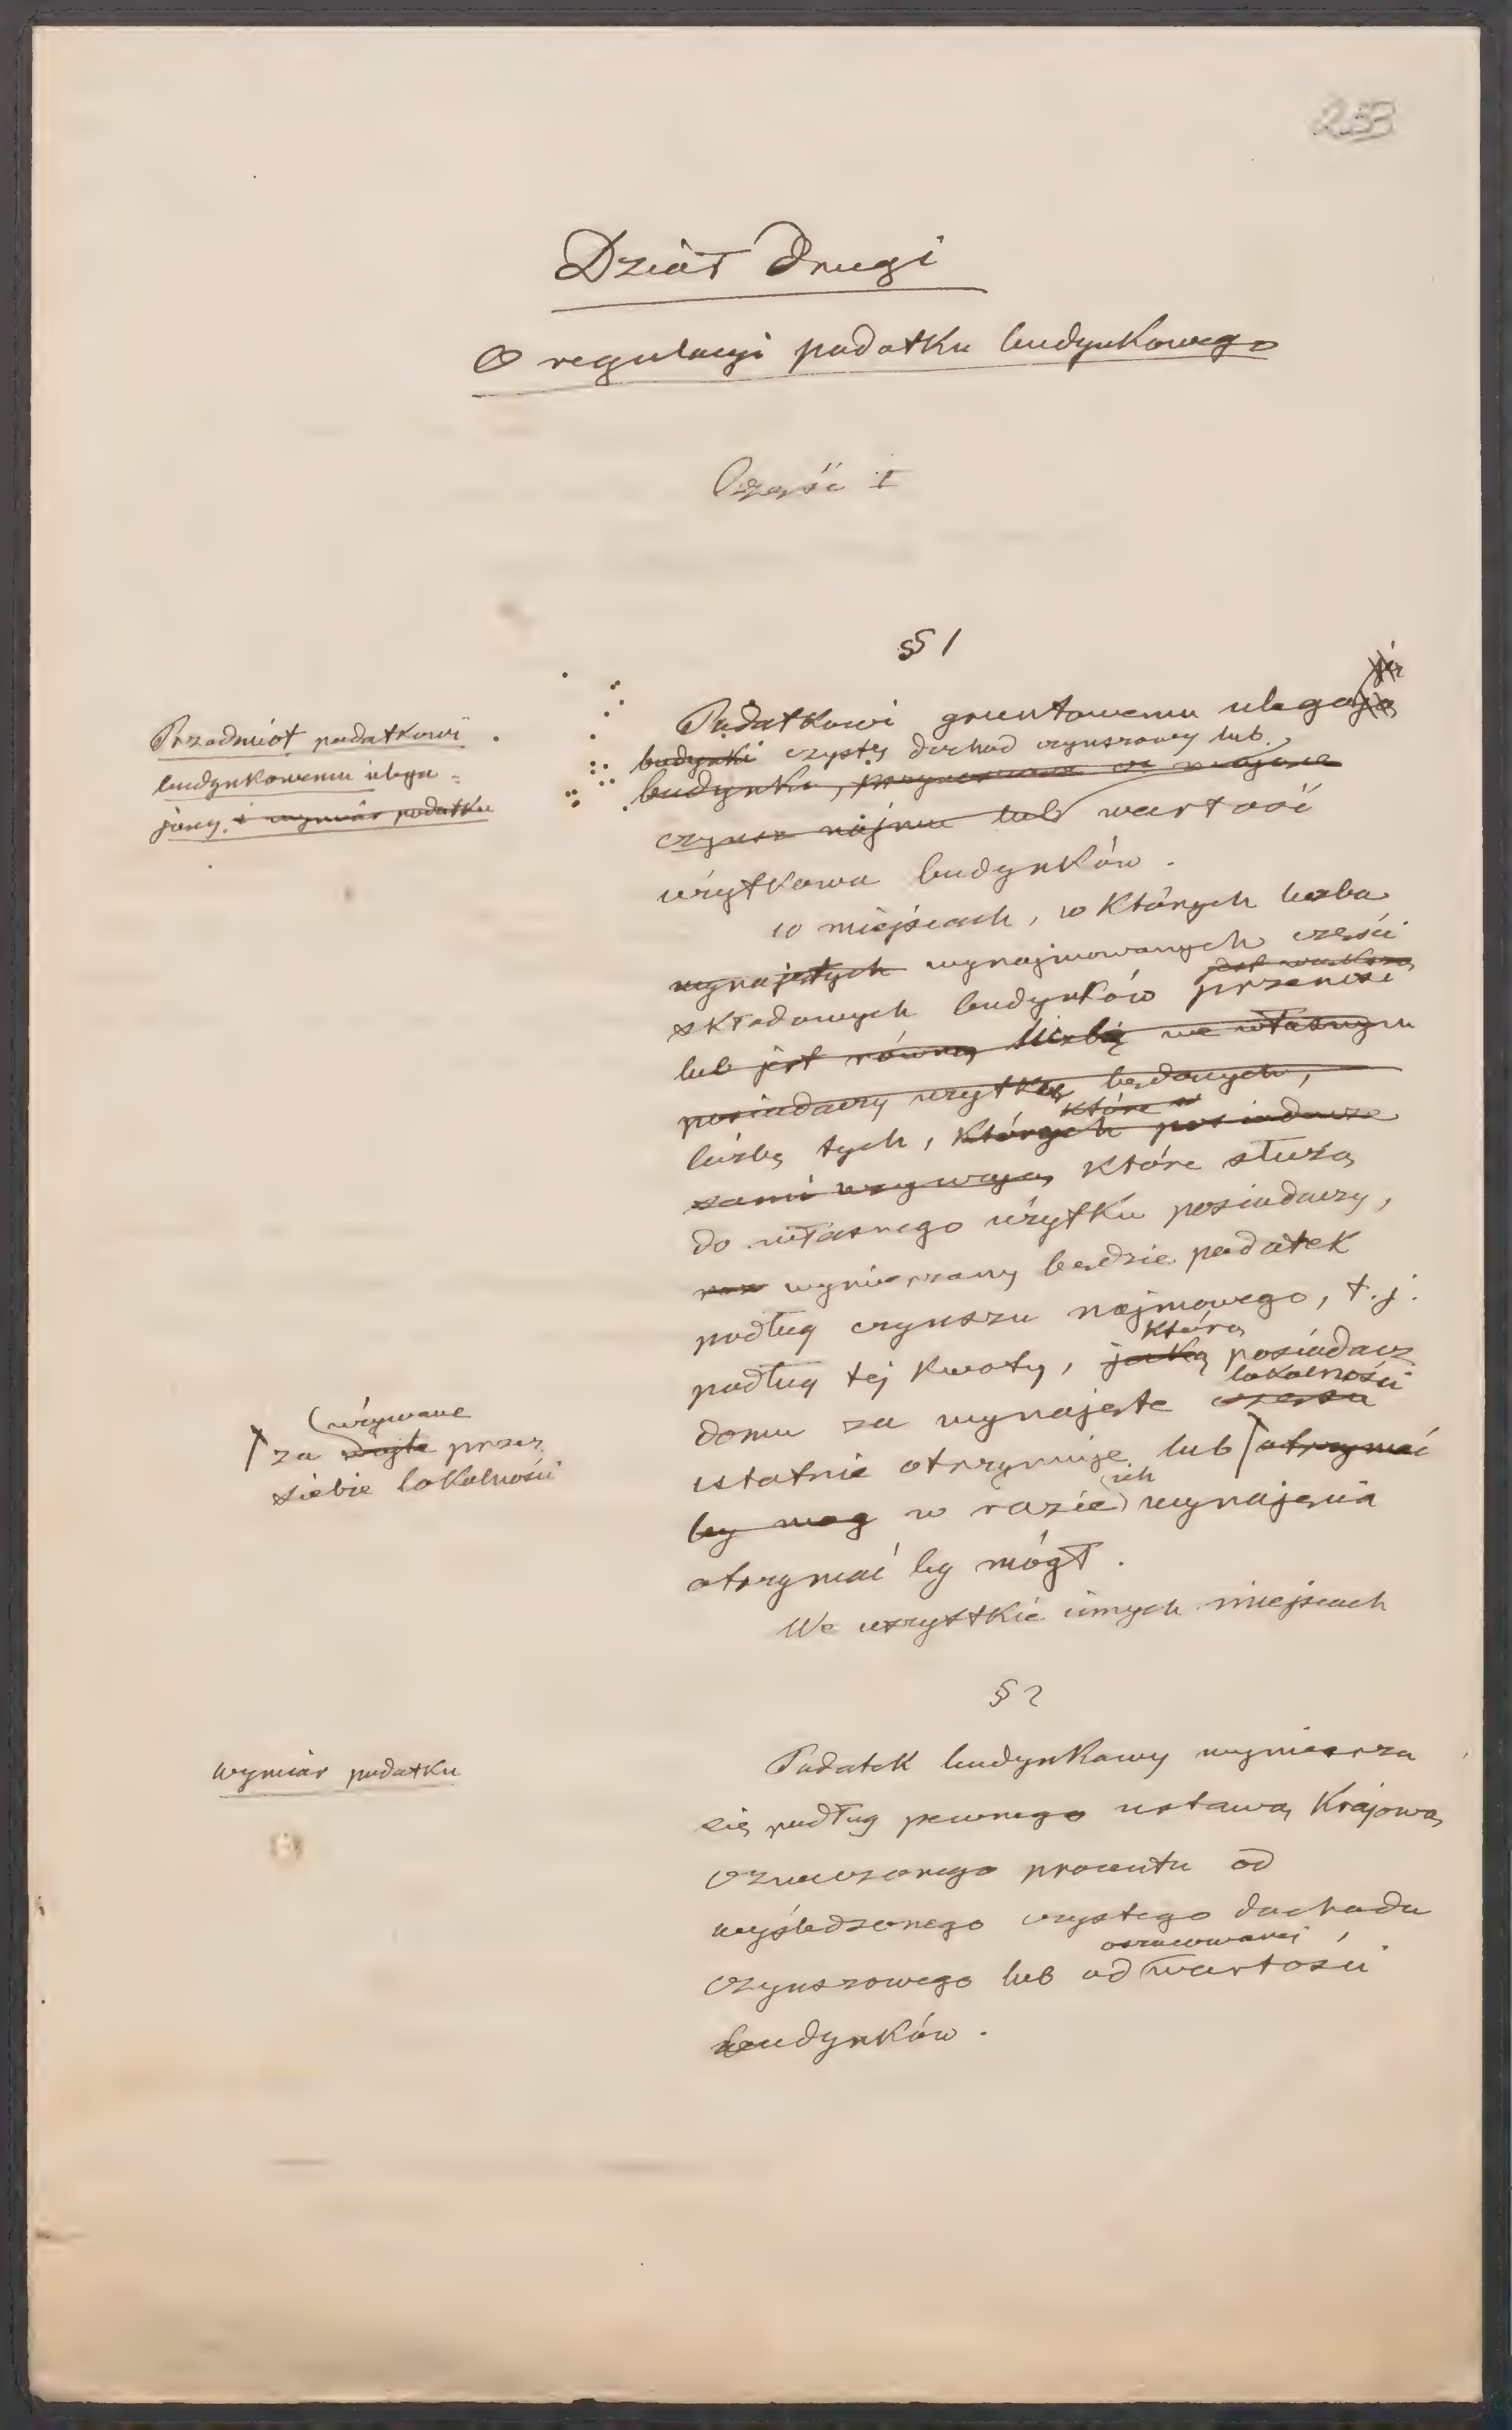 233
Dział drugi
O regulacyi podatku budynkowego
Część I
§ 1
Przedmiot podatkowi
budynkowemu ulega=
jący. i wymiar podatku
Podatkowi gruntowemu ulegają
budynki czysty dochód czynszowy lub
budynki,
czynsz najmu lub wartość
użytkowa budynków.
w miejscach, w których liczba
wynajętych wynajmowanych części
jest większa
składowych budynków przenosi
lub jest równą liczbie we własnym
posiadaczy użytku będących,
które w
liczbę tych, których posiadacze
sami używają, które służą
do własnego użytku posiadaczy,
wymierzany będzie podatek
podług czynszu najmowego, t.j.
którą
podług tej kwoty, jaką posiadacz
lokalności
domu za wynajęte części
istotnie otrzymuje lub otrzymać
ich
by mog w razie wynajęcia
otrzymać by mógł.
używane
za zajęte przez
siebie lokalności
We wszystkie innych miejscach
§ 2
Wymiar podatku
Podatek budynkowy wymierza
się podług pewnego ustawą Krajową
oznaczonego procentu od
wyśledzonego czystego dochodu
oszacowanej
czynszowego lub od wartości
budynków.